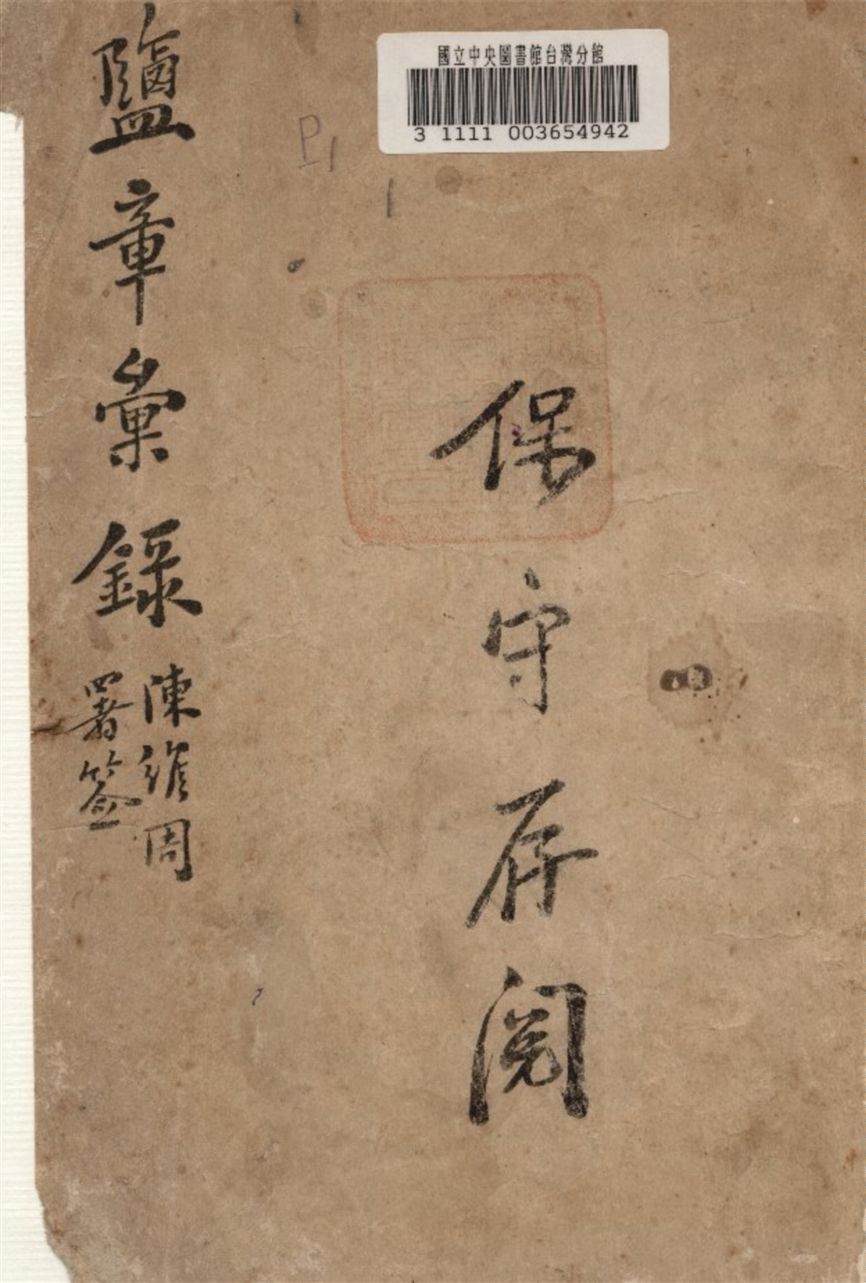 國立中央圖書館台灣分館
3 1111 003654942
P1
保守存閱
鹽章彙錄
陳維周
署簽